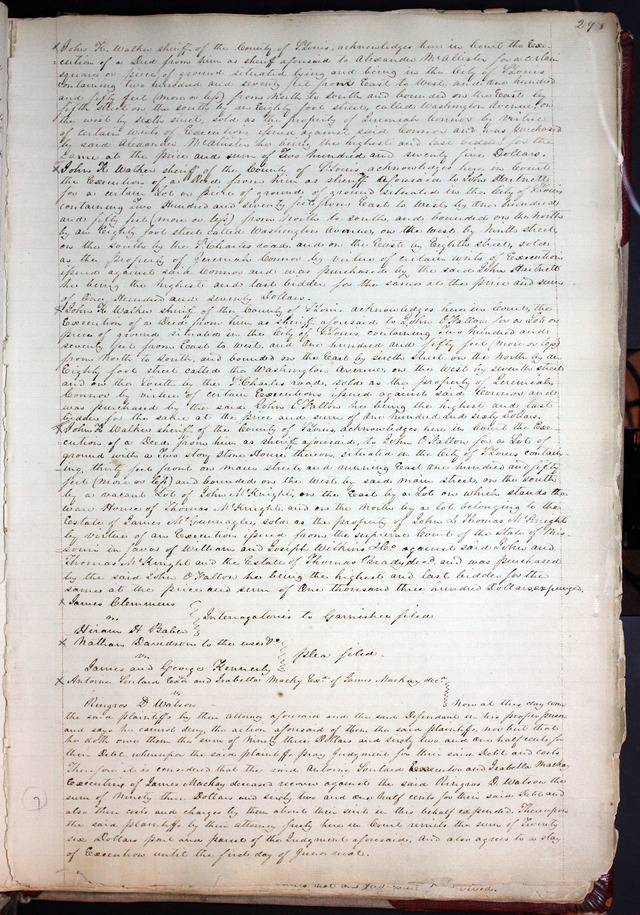 29
x John K. Walker sheriff of the County of St Louis, acknowledges here in Court the Exe-
cution of a Deed from him as sheriff aforesaid to Alexander McAllister for a certain
square or piece of ground situated lying and being in the City of St Louis
containing two hundred and seventy feet from East to West, and one hundred
and fifty feet (more or less) from North to south and bounded on the East by
fifth Street on the south by an Eighty foot street, called Washington Avenue, on
the west by sixth street, sold as the property of Jeremiah Connor by virtue
of certain writs of Execution issued against said Connor and was purchased
by said Alexander McAllister he being the highest and last bidder for the
same at the price and sum of Two hundred and seventy five Dollars.
x John K Walker sheriff of the County of St Louis acknowledges here in Court
the Execution of a Deed from him as sheriff aforesaid to John Hartnett
for a certain Lot or piece of ground of ground situated in the City of St Louis
containing Two Hundred and seventy feet from East to West by one hundred
and fifty feet (more or less) from north to south, and bounded on the North
by an Eighty foot street called Washington Avenue, on the west by Ninth street,
on the south by the St Charles road, and on the East by Eighth street, sold
as the property of Jeremiah Connor by virtue of certain writs of Execution
issued against said Connor and was purchased by the said John Hartnett
he being the highest and last bidder for the same at the price and sum
of One Hundred and seventy Dollars.
x John K. Walker sheriff of the County of St Louis acknowledges here in Court, the
Execution of a Deed from him as sheriff aforesaid to John O'Fallon for a Lot or
piece of ground situated in the City of St Louis containing two hundred and
seventy feet from East to west, and One hundred and fifty feet (more or less)
from North to south, and bounded on the East by sixth Street on the North by an
Eighty foot street called the Washington Avenue, on the west by seventh street
and on the South by the St Charles road, sold as the property of Jeremiah
Connor by virtue of certain Executions issued against said Connor and
was purchased by the said John O'Fallon he being the highest and last
bidder for the same at the price and sum of One hundred and sixty Dollars.
x John K Walker sheriff of the County of St Louis acknowledges here in Court the Exe-
cution of a Deed from him as sheriff aforesaid, to John O'Fallon for a Lot of
ground with a Two Story stone House thereon, situated in the City of St Louis contain-
ing, thirty feet front on main street and running East one hundred and fifty
feet (more or less) and bounded on the West by said main street, on the south
by a vacant Lot of John McKnight, on the East by a Lot on which stands the
ware House of Thomas McKnight, and on the North by a lot belonging to the
Estate of James McGunnagle, sold as the property of John & Thomas McKnight
by virtue of an Execution issued from the supreme Court of the State of Mis-
souri in favor of William and Joseph Wilkins &c against said John and
Thomas McKnight and the Estate of Thomas Brady decd. and was purchased
by the said John O'Fallon he being the highest and last bidder for the
same at the price and sum of One thousand three hundred Dollars expunged.
x James Clemmens
vs. Interrogatories to Garnishee filed
Hiram H. Baber
x Nathan Davidson to the use &c
vs. Plea filed.
James and George Kennerly
x Antoine Soulard Exr and Isabella Macky Exx. of James Mackay decd.
vs Now at this day come
Ringros D. Watson
the said plaintiffs by their attorney aforesaid and the said Defendant in his proper person
and says he cannot deny the action aforesaid of them the said plaintiffs nor but that
he doth owe them the sum of Ninety three Dollars and sixty two and one half cents for
their Debt. whereupon the said plaintiffs pray Judgment for their said Debt and costs
Therefore it is considered that the said Antoine Soulard Executor and Isabella Mackay
Executrix of James Mackay deceased recover against the said Ringros D. Watson the
sum of Ninety three Dollars and sixty two and one half cents for their said Debt and
also their costs and charges by them about their suit in this behalf expended. Thereupon
the said plaintiffs by their attorney freely here in Court remits the sum of Twenty
six Dollars part and parcel of the Judgment aforesaid, and also agrees to a stay
of Execution until the first day of June next.